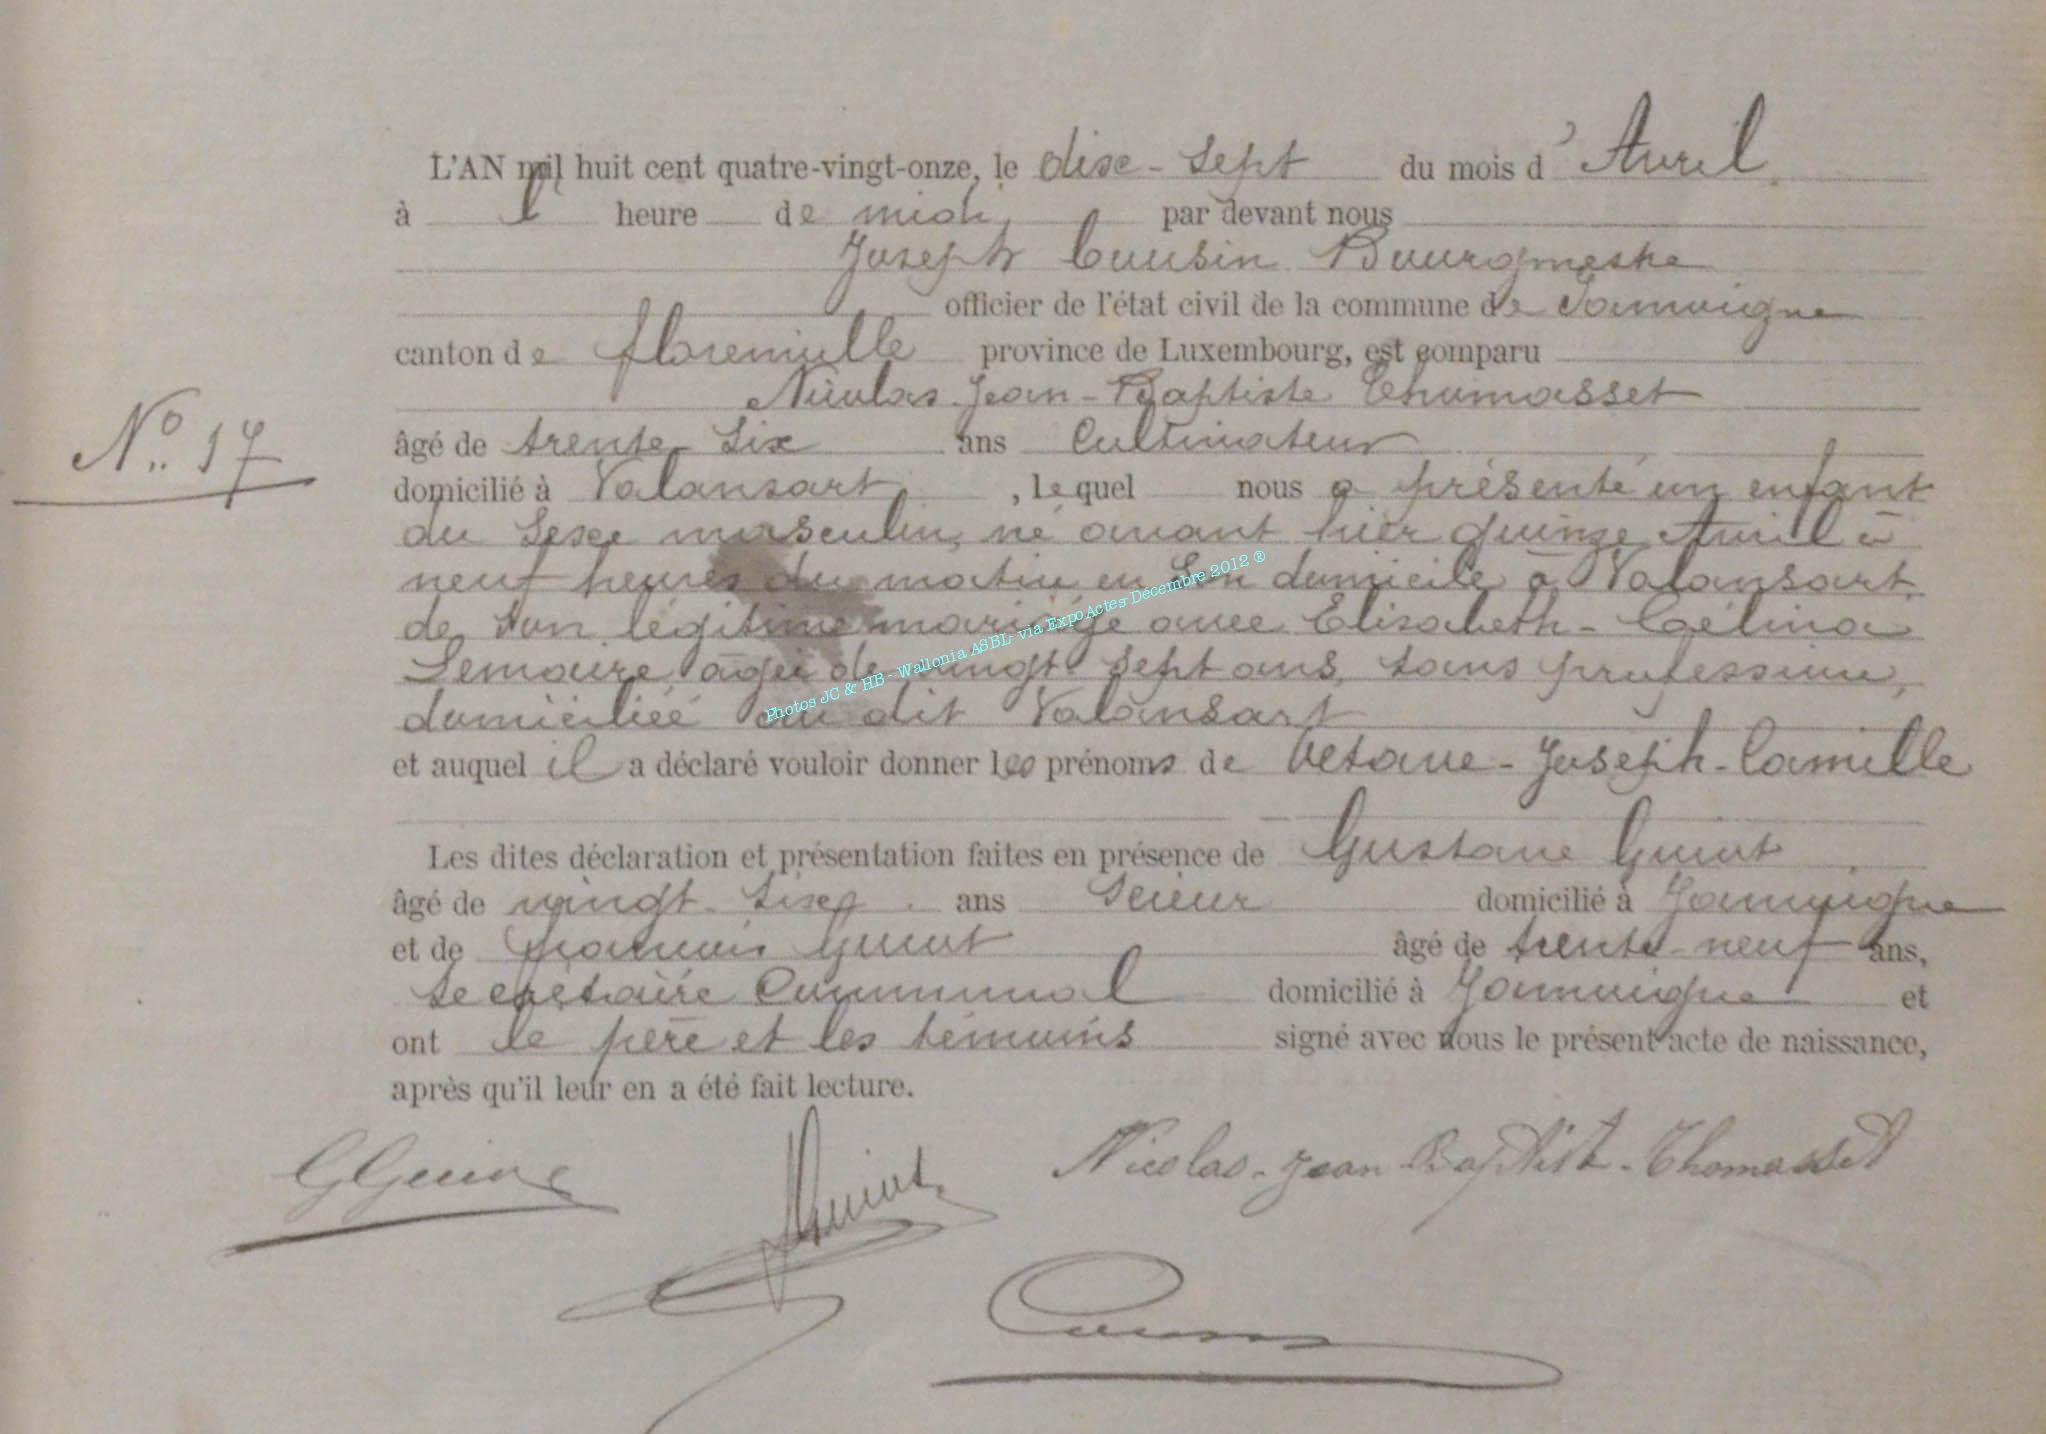 L'AN mil huit cent quatre-vingt-onze, le dix-sept du mois d'Avril
à l' heure de midi, par devant nous
Joseph Cousin Bourgmestre
officier de l'état civil de la commune de Jamoigne
canton de florenville province de Luxembourg, est comparu
Nicolas-Jean-Baptiste Thomasset
N° 17
âgé de trente-six ans Cultivateur
domicilié à Valansart, lequel nous a présenté un enfant
du sexe masculin, né avant hier quinze Avril à
neuf heures du matin en son domicile à Valansart,
de son légitime mariage avec Elisabeth-Célina
Lemaire âgée de vingt sept ans, sans profession,
domiciliée au dit Valansart
Photos JC & HB - Wallonia ASBL- via ExpoActes- Décembre 2012 ®
et auquel il a déclaré vouloir donner les prénoms de Octave-Joseph-Camille
Les dites déclaration et présentation faites en présence de Gustave Guiot
âgé de vingt-six ans Scieur domicilié à Jamoigne
et de François Guiot âgé de trente-neuf ans,
secrétaire Communal domicilié à Jamoigne et
ont le père et les témoins signé avec nous le présent acte de naissance,
après qu'il leur en a été fait lecture.
Nicolas-Jean-Baptist-Thomasset
Guiot
Cousin